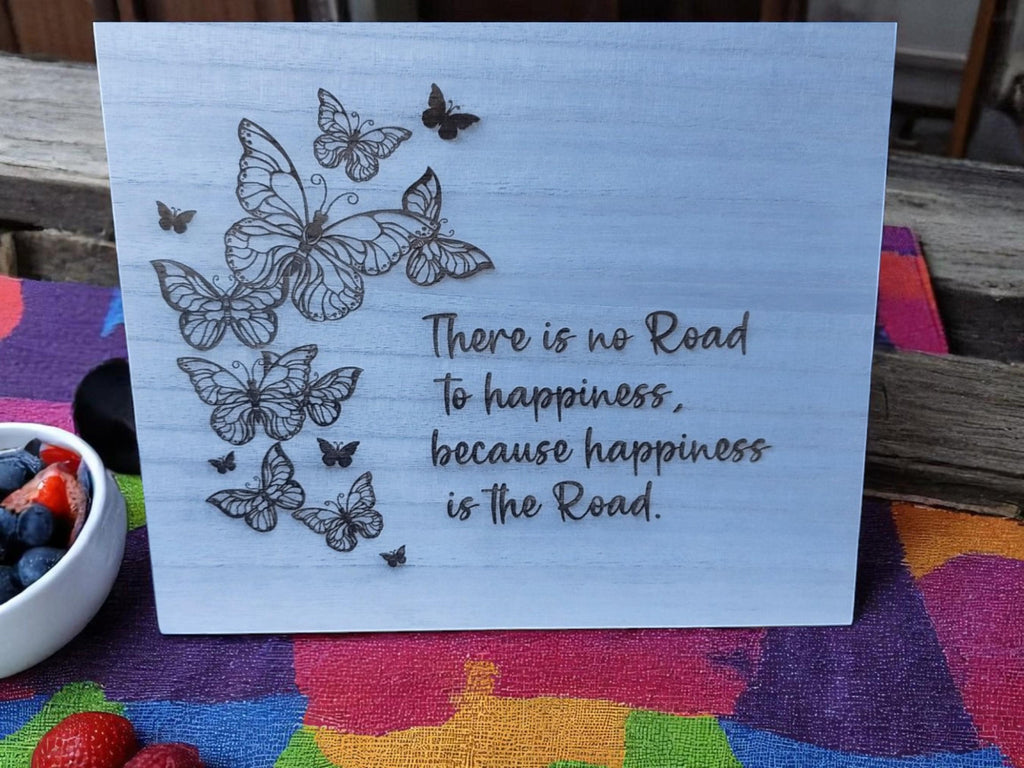 There is no Road
to happiness,
because happiness
is the Road.